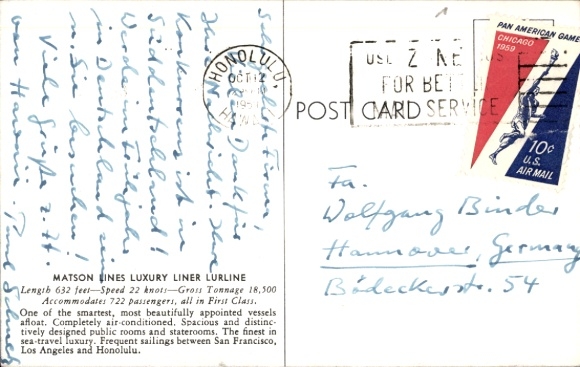 Sehr geehrte Firma!
Vielen Dank für
Ihre Nachricht. Ihre
Konkurrenz ist in
Süddeutschland!
Werde im Frühjahr
in Deutschland sein
u. Sie besuchen!
Viele Grüße z. Zt.
von Hawaii. Paul
HONOLULU,
OCT 12
POST CARD
USE ZONE
FOR BETTER
SERVICE
PAN AMERICAN GAMES
CHICAGO
1959
10¢
U.S.
AIR MAIL
Fa.
Wolfgang Binder
Hannover, Germany
Bödeckerstr. 54
MATSON LINES LUXURY LINER LURLINE
Length 632 feet—Speed 22 knots—Gross Tonnage 18,500
Accommodates 722 passengers, all in First Class.
One of the smartest, most beautifully appointed vessels
afloat. Completely air-conditioned. Spacious and distinc-
tively designed public rooms and staterooms. The finest in
sea-travel luxury. Frequent sailings between San Francisco,
Los Angeles and Honolulu.